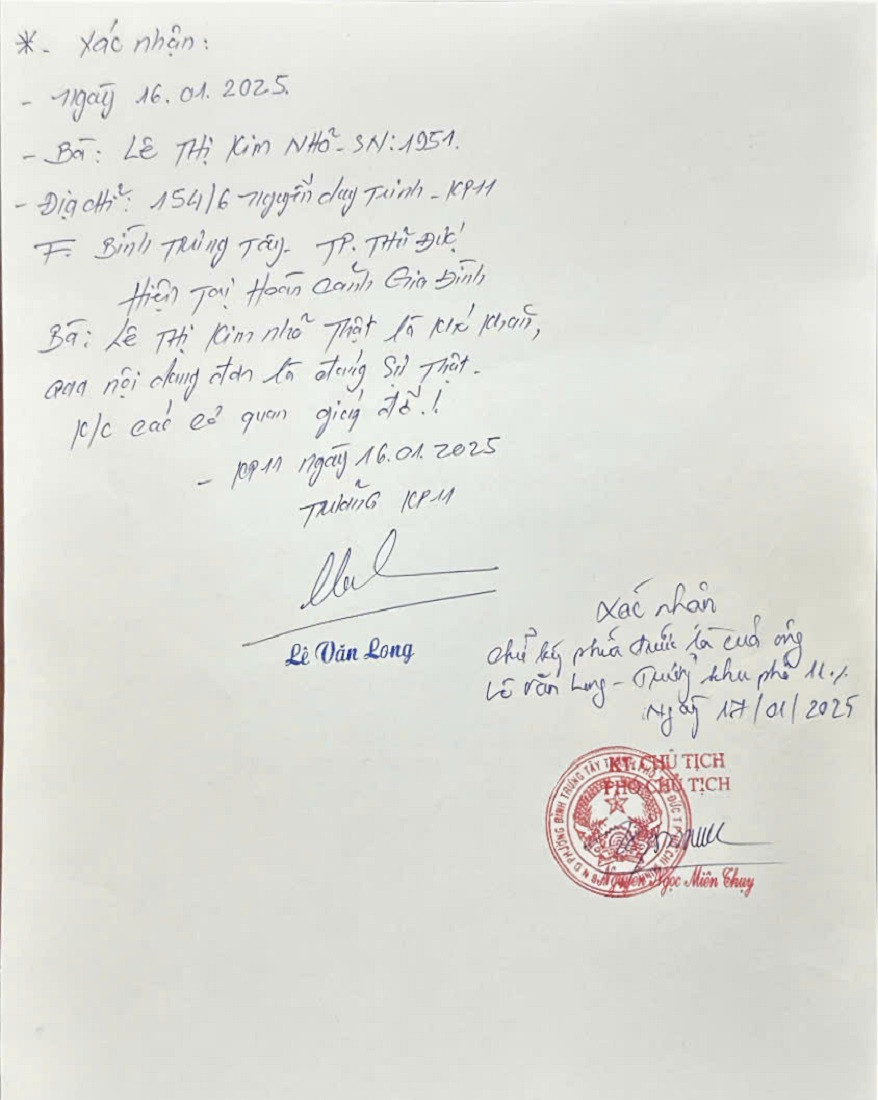 *. Xác nhận:
- Ngày 16.01.2025.
- Bà: Lê Thị Kim Nhỏ - SN: 1951.
- Địa chỉ: 154/6 Nguyễn Duy Trinh - KP11
F. Bình Trưng Tây - TP. Thủ Đức
Hiện Tại Hoàn Cảnh Gia Đình
Bà: Lê Thị Kim Nhỏ Thật là khó khăn,
qua nội dung đơn là đúng Sự Thật.
K/c các cơ quan giúp đỡ.!
- KP11 ngày 16.01.2025
Trưởng KP11
Lê Văn Long
Xác nhận
chữ ký phía trước là của ông
Lê Văn Long - Trưởng khu phố 11./.
Ngày 17/01/2025
KT. CHỦ TỊCH
PHÓ CHỦ TỊCH
Nguyễn Ngọc Miên Thụy